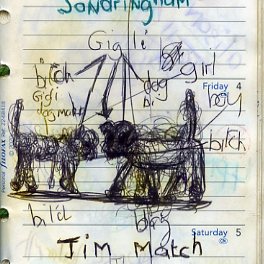 Sandringham
Gigli
bitch
dog
girl
Friday 4
Gigi
dog match
bi
boy
bitch
bitch
boy
Saturday 5
Jim Match